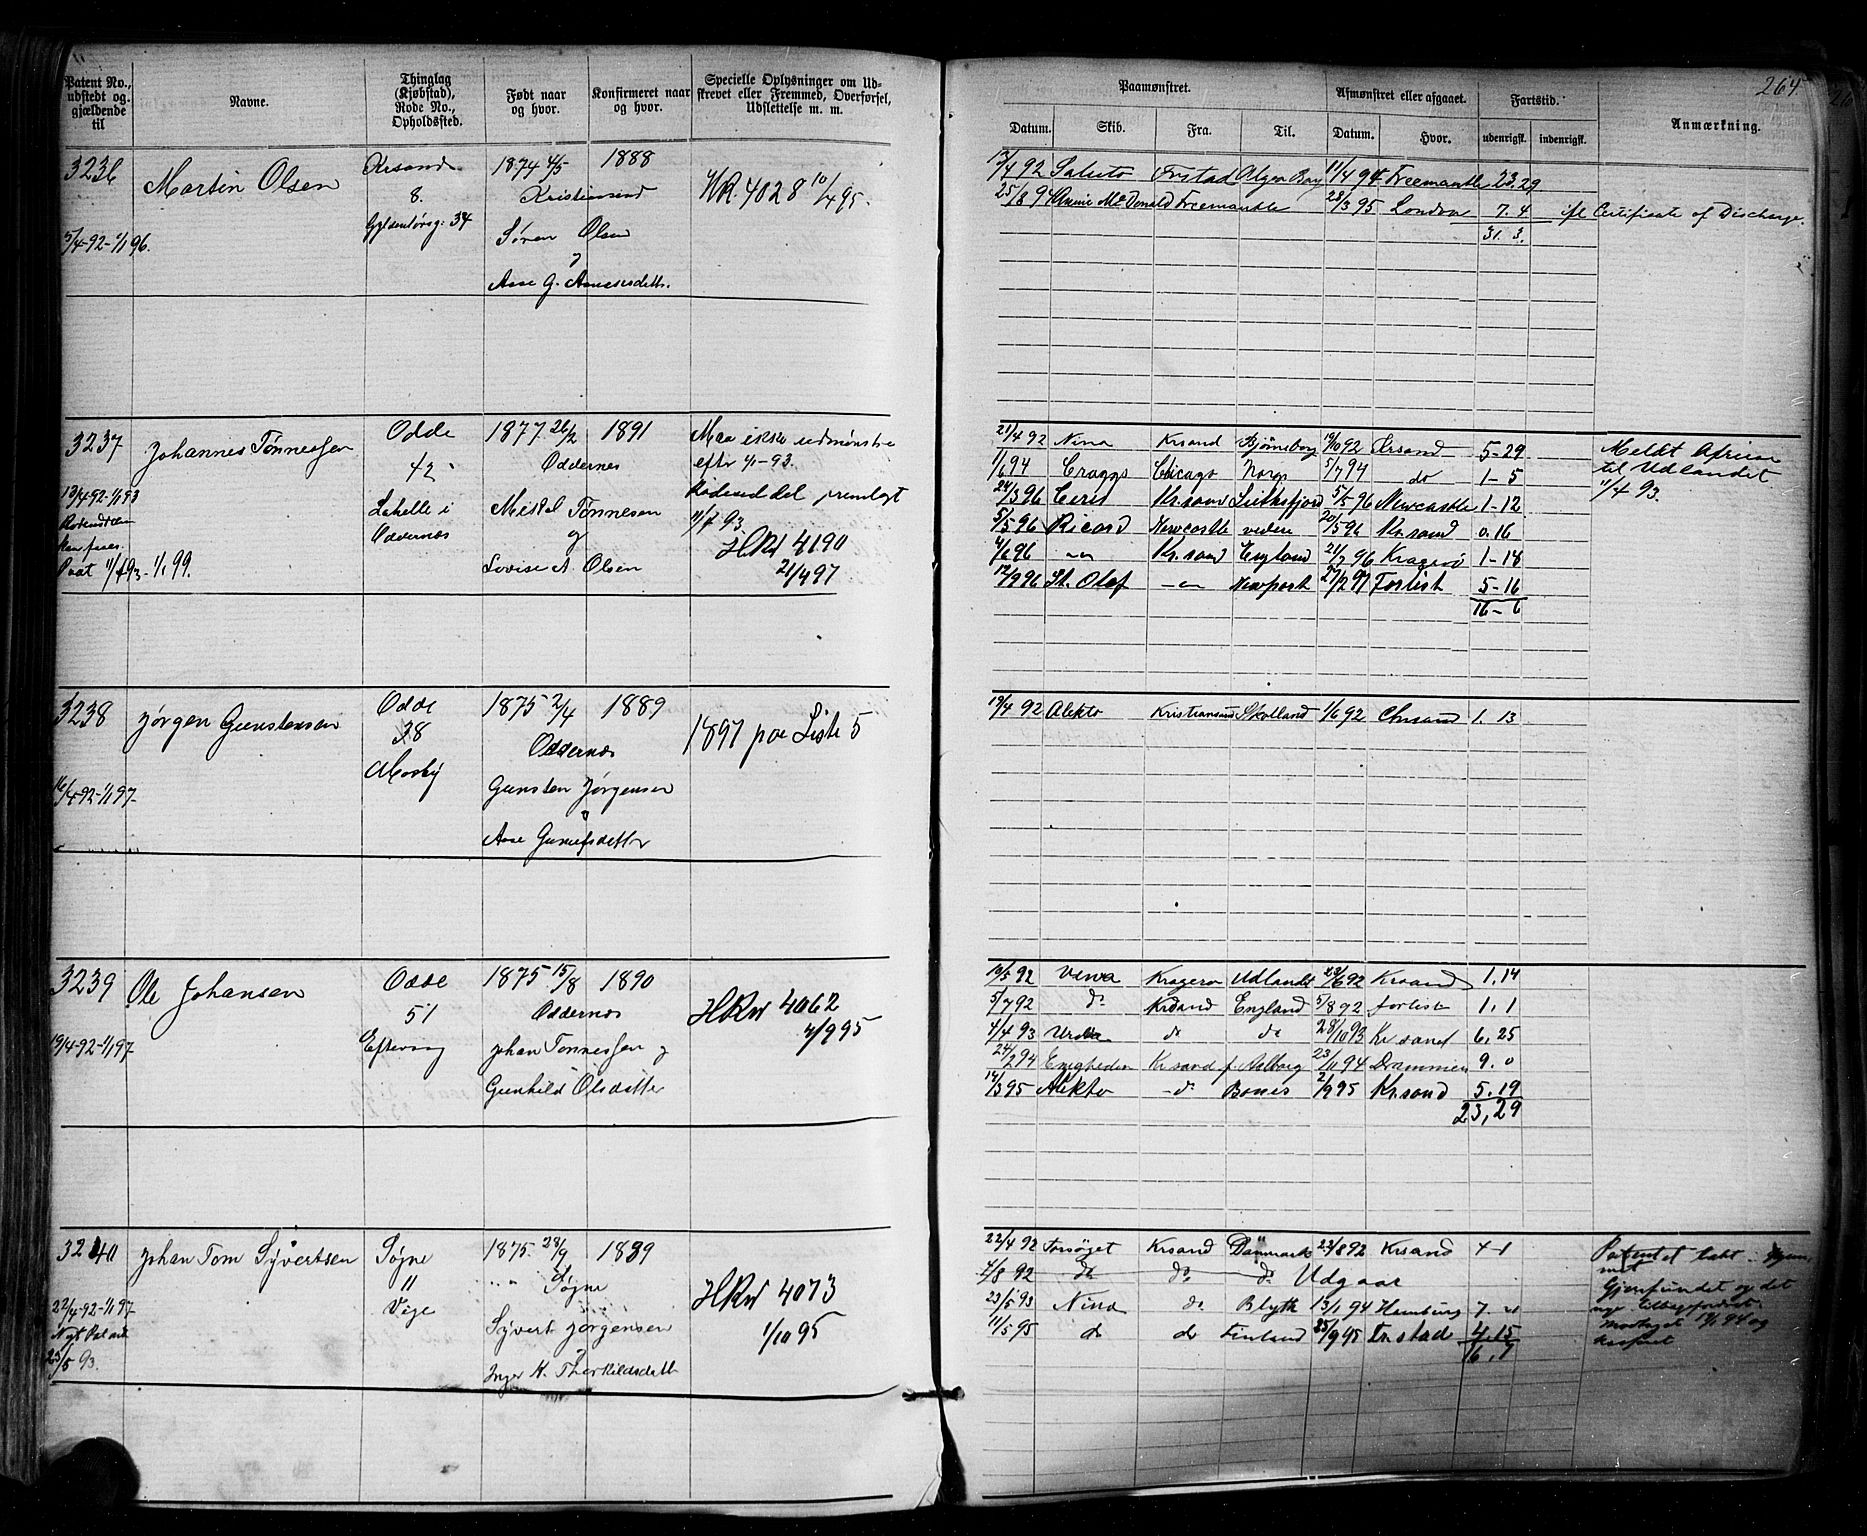 264
Patent No., udstedt og gjældende til
Navne.
Thinglag (Kjøbstad), Rode No., Opholdssted.
Født naar og hvor.
Konfirmeret naar og hvor.
Specielle Oplysninger om Udskrevet eller Fremmed, Overførsel, Udslettelse m. m.
Paamønstret.
Afmønstret eller afgaaet.
Fartstid.
Anmærkning.
Datum. Skib. Fra. Til. Datum. Hvor. udenrigsk. indenrigsk.
3236
5/4-92-1/1 96.
Martin Olsen
Krsand
8.
Gyldenløvsg: 34
1874 4/5 1888
Kristianssand
Søren Olsen
Aase G.
HR. 4028 10/4 95.
13/4 92 Saluto Frstad Algoa Bay 11/4 94 Freemantle 23.29
25/8 94 Annie Mc Donald Freemantle 28/3 95 London 7. 4 ifl Certificate of Discharge.
31. 3.
3237
13/4-92-1/1 93
11/4 93-1/1 99.
Johannes Tønnessen
Odde
42
i
Oddernæs
1877 26/2 1891
Oddernes
Mikal Tønnesen
og
Lovise A. Olsen
Maa ikke udmønstres
efter 1/1-93.
Rodeseddel fremlagt
11/4 93
HRw 4190
21/4 97
21/4 92 Nina Krsand Bjørneborg 19/10 92 Krsand 5-29
1/6 94 Craggs Chicago Norge 5/7 94 do 1-5
24/3 96 Ceres Kr.sand 5/5 96 Newcastle 1-12
5/5 96 Ricard Newcastle videre 20/5 96 Kr.sand 0.16
4/6 96 -"- Kr.sand England 21/7 96 Kragerø 1-18
12/9 96 St. Olaf -"- Newport 27/2 97 Forlist 5-16
16-6
Meldt Afreise
til Udlandet
11/4 93.
3238
16/4-92-1/1 97-
Jørgen Gunstensen
Odde
38
Mosby
1875 2/4 1889
Oddernæs
Gunsten Jørgensen
Aase
1897 paa Liste 5
19/4 92 Alekto Kristianssund Skotland 1/6 92 Chrsand 1. 13
3239
19/4-92-1/1 97
Ole Johansen
Odde
51
Eftevaag
1875 15/8 1890
Oddernæs
Johan Tønnessen og
Gunhild Olsdatter
HRw 4062
4/9 95
10/5 92 Kragerø Udlandt 23/6 92 Krsand 1.14
5/7 92 do Krsand England 5/8 92 forlist 1. 1
4/4 93 do do 28/10 93 Kr.sand 6.25
24/2 94 Enigheden Kr sand f. Aalborg 23/11 94 Drammen 9. 0
14/3 95 Alekto -do- 2/9 95 Kr.sand 5. 19
23,29
3240
22/4-92-1/1 97
Nyt Patent
23/5 93.
Johan Tom Syvertsen
Søgne
11
Vige
1875 28/9 1889
" " Søgne
Syvert Jørgensen
Inger K. Therkildsdatt
HRw 4073
1/10 95
22/4 92 Forsøget Krsand Danmark 23/8 92 Krsand 4-1
4/8 92 do do do Udgaar
23/5 93 Nina do Blyth 13/1 94 Hamburg
11/5 95 do do Finland 25/9 95 Fr.stad 4.15
16.7
Patentet tabt
Gjenfundet og det
nye